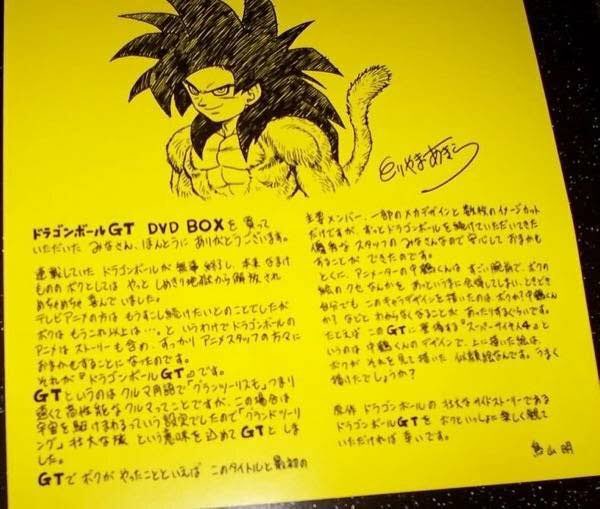 とりやまあきら
ドラゴンボールGT DVD BOXを買って
いただいた みなさん、ほんとうに ありがとうございます。
連載していた ドラゴンボールが 無事 終了し、本来 なまけ
ものの ボクとしては やっと しめきり地獄から 解放され
めちゃめちゃ 喜んで いました。
テレビアニメの方は もう少し続けたいとのことでしたが
ボクは もうこれ以上は…。と いうわけで ドラゴンボールの
アニメは ストーリーも含め、すっかり アニメスタッフの方々に
おまかせすることに なったのです。
それが『ドラゴンボールGT』です。
GTというのは クルマ用語で「グランツーリスモ」、つまり
速くて高性能な クルマってことですが、この場合は
宇宙を駆けまわるっていう設定でしたので「グランドツーリ
ング」、壮大な旅 という意味を込めて GTと しま
した。
GTで ボクが やったことといえば このタイトルと 最初の
主要メンバー、一部のメカデザインと 数枚の イメージカット
だけですが、ずっとドラゴンボールを 続けていただいてきた
優秀な スタッフの みなさんなので 安心して おまかせ
することが できたのです。
とくに、アニメーターの 中鶴くんは すごい腕前で、ボクの
絵の クセ なんかを あっというまに 会得してしまい、ときどき
自分でも このキャラデザインを 描いたのは ボクか? 中鶴くん
か? などと わからなくなることが あったりするぐらいです。
たとえば このGTに 登場する『スーパーサイヤ人4』と
いうのは 中鶴くんの デザインで、上に描いた絵は、
ボクが それを見て描いた 似顔絵なんです。うまく
描けたでしょうか?
原作 ドラゴンボールの 壮大な サイドストーリーである
ドラゴンボールGTを ボクといっしょに 楽しく 観て
いただければ 幸いです。
鳥山 明